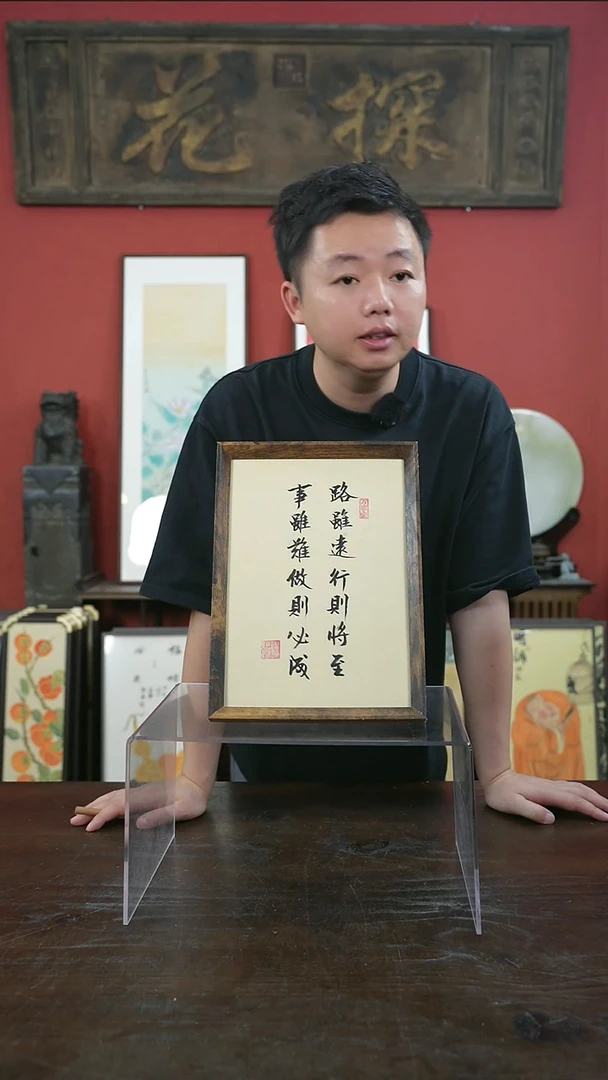 探花
路雖遠行則將至
事雖難做則必成